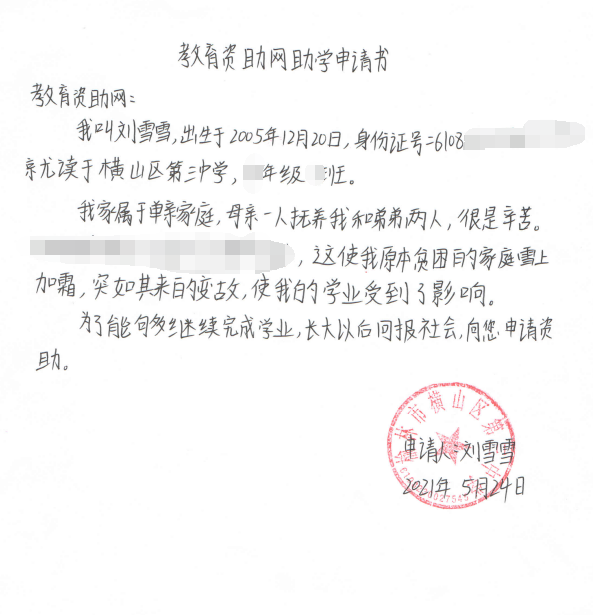 教育资助网助学申请书
教育资助网:
我叫刘雪雪,出生于2005年12月20日,身份证号:6108
就读于横山区第三中学, 年级 班。
我家属于单亲家庭,母亲一人抚养我和弟弟两人,很是辛苦。
,这使我原本贫困的家庭雪上
加霜,突如其来的变故,使我的学业受到了影响。
为了能够继续完成学业,长大以后回报社会,向您申请资
助。
榆林市横山区第三中学
申请人:刘雪雪
2021年 5月24日